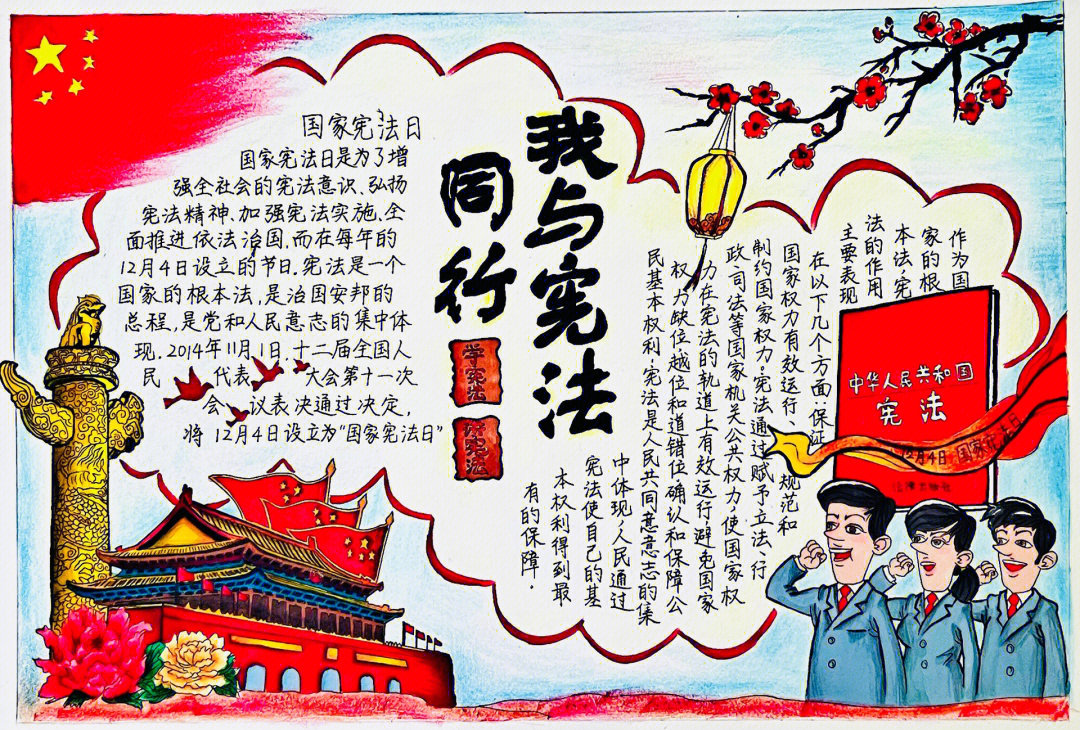 我与宪法
同行
学宪法
宪法
国家宪法日
国家宪法日是为了增
强全社会的宪法意识、弘扬
宪法精神、加强宪法实施、全
面推进依法治国,而在每年的
12月4日设立的节日.宪法是一个
国家的根本法,是治国安邦的
总程,是党和人民意志的集中体
现.2014年11月1日,十二届全国人
民代表大会第十一次
会议表决通过决定,
将12月4日设立为"国家宪法日"
作为国
家的根
本法,宪
法的作用
主要表现
在以下几个方面,保证
国家权力有效运行、规范和
制约国家权力;宪法通过赋予立法、行
政、司法等国家机关公共权力,使国家权
力在宪法的轨道上有效运行,避免国家
权力缺位越位和道错位,确认和保障公
民基本权利;宪法是人民共同意意志的集
中体现,人民通过
宪法使自己的基
本权利得到最
有的保障.
中华人民共和国
宪法
12月4日 国家宪法日
法律出版社